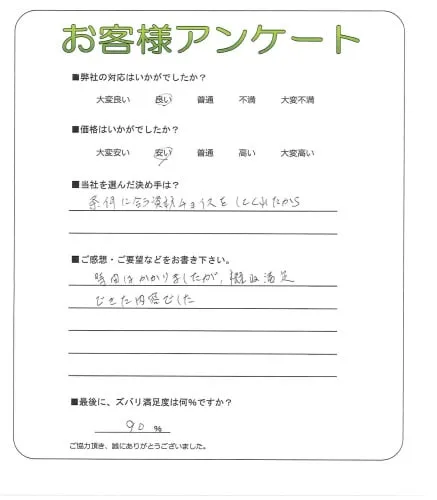 お客様アンケート
■弊社の対応はいかがでしたか？
大変良い 良い 普通 不満 大変不満
■価格はいかがでしたか？
大変安い 安い 普通 高い 大変高い
■当社を選んだ決め手は？
条件に合う資材チョイスをしてくれたから
■ご感想・ご要望などをお書き下さい。
時間はかかりましたが、概ね満足
できた内容でした
■最後に、ズバリ満足度は何％ですか？
90 %
ご協力頂き、誠にありがとうございました。